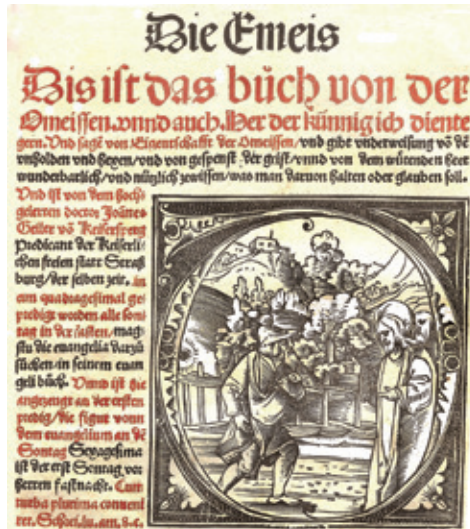 Die Emeis
Dis ist das büch von der
Omeissen. vnnd auch. Her der künnig ich diente
gern. Vnd sagt von Eigentschafft der Omeissen/ vnd gibt vnderweisung vō dē
vnholden vnd hexen/ vnd von gespenst der geist/ vnnd von dem wütenden heer
wunderbarlich/ vnd nützlich zewissen/ was man daruon halten oder glauben soll.
Vnd ist von dem hoch
gelerten doctor Joānes
Geiler vō Keisersperg
Predicant der Keiserli
chen freien statt Straß
burg/ der selben zeit, in
eim quadragesimal ge
predigt worden alle son
tag in der fasten/ mag
stu die euangelia darzü
süchen in seinem euan
geli büch. Vnnd ist hie
angezeigt an der ersten
predig/ die figur vonn
dem euangelium an dē
Sontag Sexagesima
ist der erst Sontag vor
herren fastnacht. Cum
turba plurima conueni
ret.